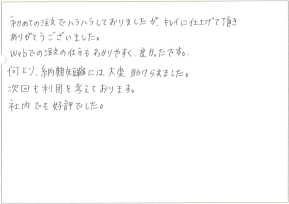 初めての注文でハラハラしておりましたが キレイに仕上げて頂き
ありがとうございました。
Webでの注文の仕方もわかりやすく、良かったです。
何より、納期短縮には大変助けられました。
次回も利用を考えております。
社内でも好評でした。